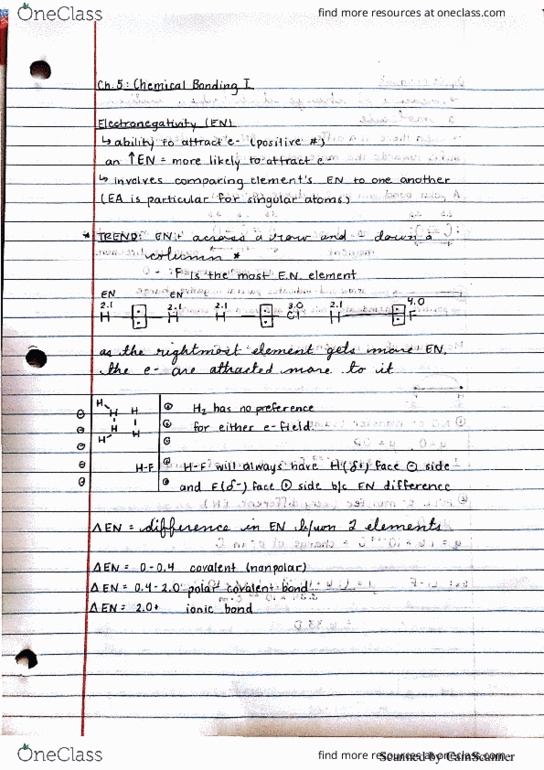 OneClass
find more resources at oneclass.com
Ch. 5: Chemical Bonding I
Electronegativity (EN)
↳ ability to attract e- (positive #)
an ↑EN = more likely to attract e-
↳ involves comparing element's EN to one another
(EA is particular for singular atoms)
* TREND: EN↑ across a row and ↓ down a
column *
F is the most E.N. element
EN EN
2.1 2.1 2.1 3.0 2.1 4.0
H H H Cl H F
as the rightmost element gets more EN,
the e- are attracted more to it
H2 has no preference
for either e-field.
H-F H-F will always have H(δ+) face ⊖ side
and F(δ-) face ⊕ side b/c EN difference
ΔEN = difference in EN b/wn 2 elements
ΔEN = 0-0.4 covalent (nonpolar)
ΔEN = 0.4-2.0 polar covalent bond
ΔEN = 2.0+ ionic bond
OneClass
find more resources at oneclass.com
Scanned by CamScanner